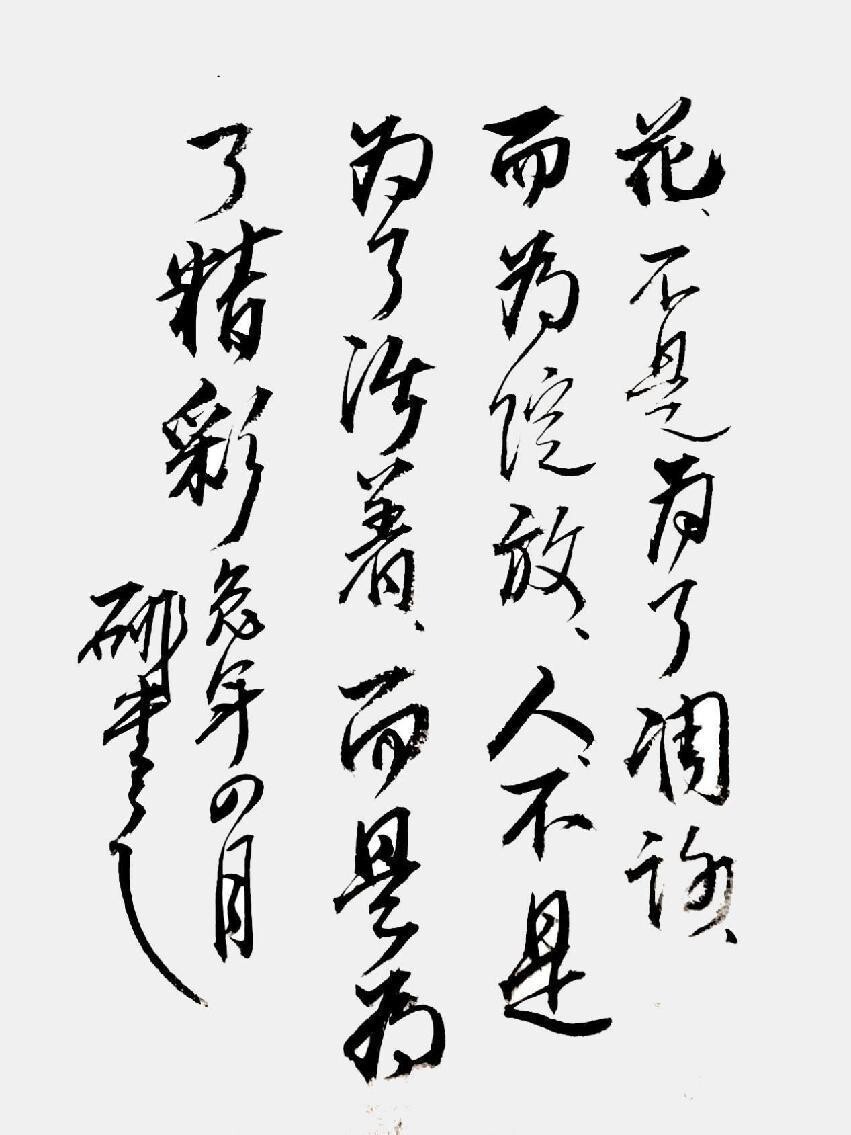 花、不是为了凋谢、
而为绽放、人、不是
为了活着、而是为
了精彩
兔年四月